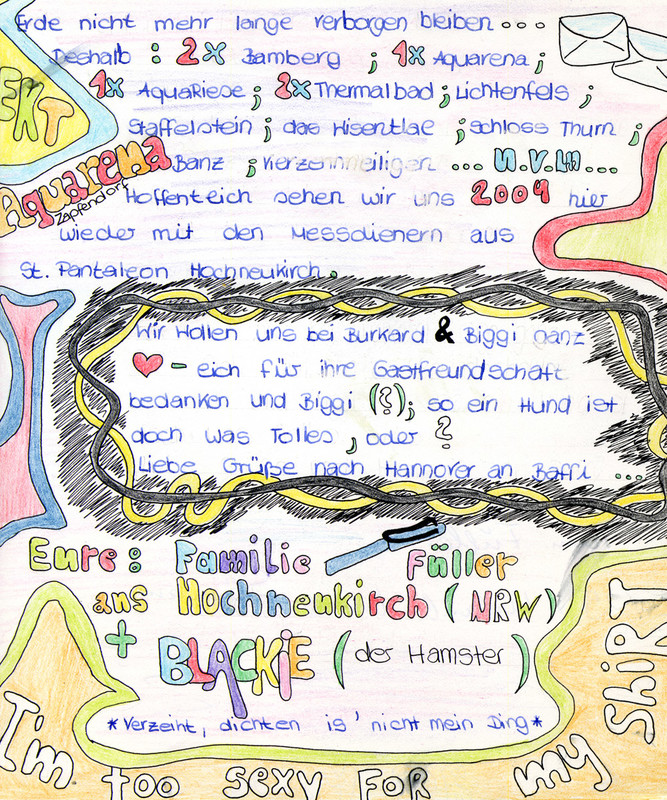 Erde nicht mehr lange verborgen bleiben...
Deshalb : 2x Bamberg ; 1x Aquarena ;
1x AquaRiese ; 2x Thermalbad ; Lichtenfels ;
Staffelstein ; das ; Schloss Thurn ;
Banz ; ... u.v.m...
Aquarema
Zapfendorf
Hoffentlich sehen wir uns 2009 hier
wieder mit den Messdienern aus
St. Pantaleon Hochneukirch.
Wir wollen uns bei Burkard & Biggi ganz
♥-eich für ihre Gastfreundschaft
bedanken und Biggi (?); so ein Hund ist
doch was Tolles , oder ?
Liebe Grüße nach Hannover an Baffi ...
Eure: Familie Füller
aus Hochneukirch (NRW)
+ BLACKiE (der Hamster)
*Verzeiht, dichten is' nicht mein Ding*
I'm too sexy FOR my ShiRT